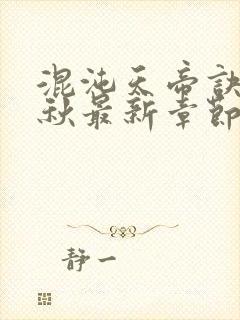 混沌天帝诀
秋最新章节
静一